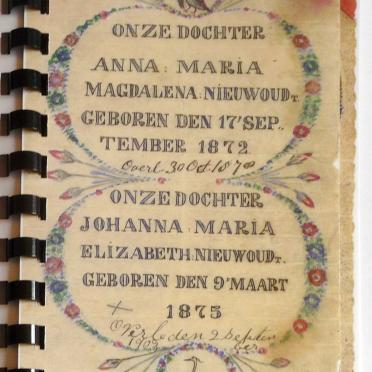 ONZE DOCHTER
ANNA MARIA
MAGDALENA NIEUWOUDT.
GEBOREN DEN 17'SEP..
TEMBER 1872.
Overl. 30 Oct. 1878
ONZE DOCHTER
JOHANNA MARIA
ELIZABETH NIEUWOUDT.
GEBOREN DEN 9'MAART
1875
Overleden 2 Septem
1902 ber